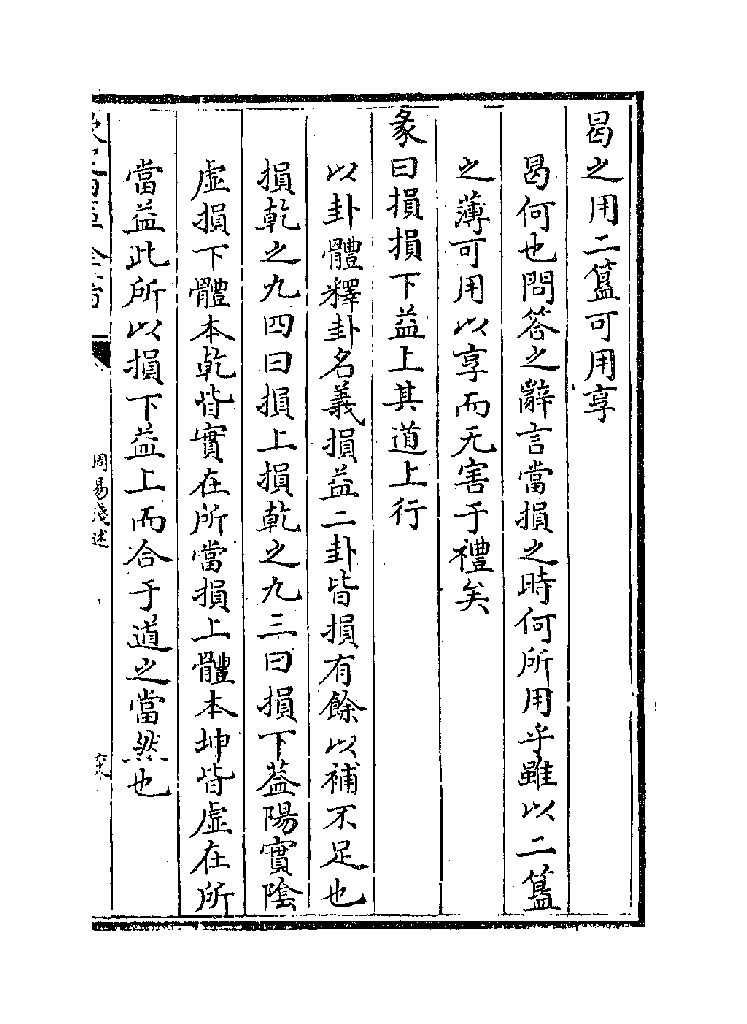 曷之用二簋可用享
曷何也問答之辭言當損之時何所用乎雖以二簋
之薄可用以享而无害于禮矣
彖曰損損下益上其道上行
以卦體釋卦名義損益二卦皆損有餘以補不足也
損乾之九四曰損上損乾之九三曰損下益陽實陰
虛損下體本乾皆實在所當損上體本坤皆虛在所
當益此所以損下益上而合于道之當然也
周易淺述